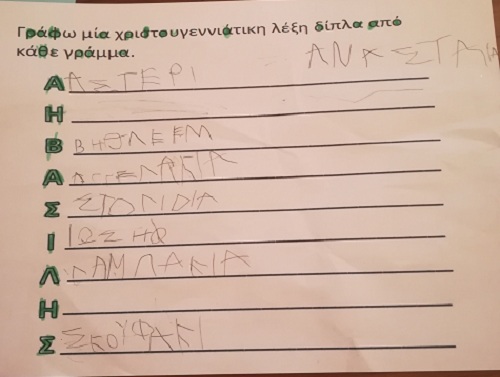 Γράφω μία χριστουγεννιάτικη λέξη δίπλα από
ΑΝΑΣΤΑΣ
κάθε γράμμα.
Α ΑΣΤΕΡΙ
Η
Β ΒΗΘΛΕΕΜ
Α ΑΓΓΕΛΑΚΙΑ
Σ ΣΤΟΛΙΔΙΑ
Ι ΙΩΣΗΦ
Λ ΛΑΜΠΑΚΙΑ
Η
Σ ΣΚΟΥΦΑΚΙ